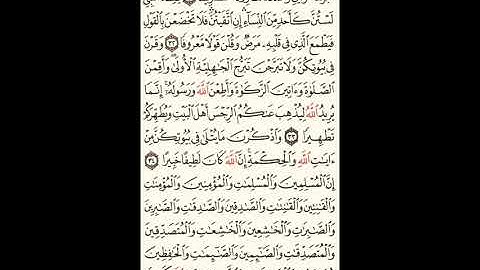 لَسْتُنَّ كَأَحَدٍ مِّنَ ٱلنِّسَآءِ إِنِ ٱتَّقَيْتُنَّ فَلَا تَخْضَعْنَ بِٱلْقَوْلِ
فَيَطْمَعَ ٱلَّذِى فِى قَلْبِهِۦ مَرَضٌ وَقُلْنَ قَوْلًا مَّعْرُوفًا ٣٢ وَقَرْنَ
فِى بُيُوتِكُنَّ وَلَا تَبَرَّجْنَ تَبَرُّجَ ٱلْجَٰهِلِيَّةِ ٱلْأُولَىٰ وَأَقِمْنَ
ٱلصَّلَوٰةَ وَءَاتِينَ ٱلزَّكَوٰةَ وَأَطِعْنَ ٱللَّهَ وَرَسُولَهُۥٓ إِنَّمَا
يُرِيدُ ٱللَّهُ لِيُذْهِبَ عَنكُمُ ٱلرِّجْسَ أَهْلَ ٱلْبَيْتِ وَيُطَهِّرَكُمْ
تَطْهِيرًا ٣٣ وَٱذْكُرْنَ مَا يُتْلَىٰ فِى بُيُوتِكُنَّ مِنْ
ءَايَٰتِ ٱللَّهِ وَٱلْحِكْمَةِ إِنَّ ٱللَّهَ كَانَ لَطِيفًا خَبِيرًا ٣٤
إِنَّ ٱلْمُسْلِمِينَ وَٱلْمُسْلِمَٰتِ وَٱلْمُؤْمِنِينَ وَٱلْمُؤْمِنَٰتِ
وَٱلْقَٰنِتِينَ وَٱلْقَٰنِتَٰتِ وَٱلصَّٰدِقِينَ وَٱلصَّٰدِقَٰتِ وَٱلصَّٰبِرِينَ
وَٱلصَّٰبِرَٰتِ وَٱلْخَٰشِعِينَ وَٱلْخَٰشِعَٰتِ وَٱلْمُتَصَدِّقِينَ
وَٱلْمُتَصَدِّقَٰتِ وَٱلصَّٰٓئِمِينَ وَٱلصَّٰٓئِمَٰتِ وَٱلْحَٰفِظِينَ